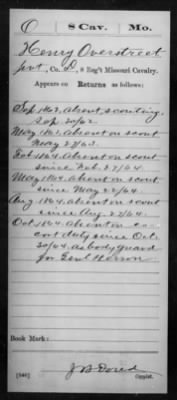 O | 8 Cav. | Mo.
Henry Overstreet
Pvt., Co. D, 8 Reg't Missouri Cavalry.
Appears on Returns as follows:
Sep 1862, absent scouting,
Sep 30/62.
May 1863, absent on scout
May 27/63.
Feb 1864, absent on scout
since Feb. 27/64.
May 1864, absent on scout
since May 22/64.
Aug 1864 absent on scout
since Aug. 27/64.
Oct 1864, absent on es-
cort duty since Oct.
30/64, as bodyguard
for Genl Herron
Book Mark:
(546)
Copyist.